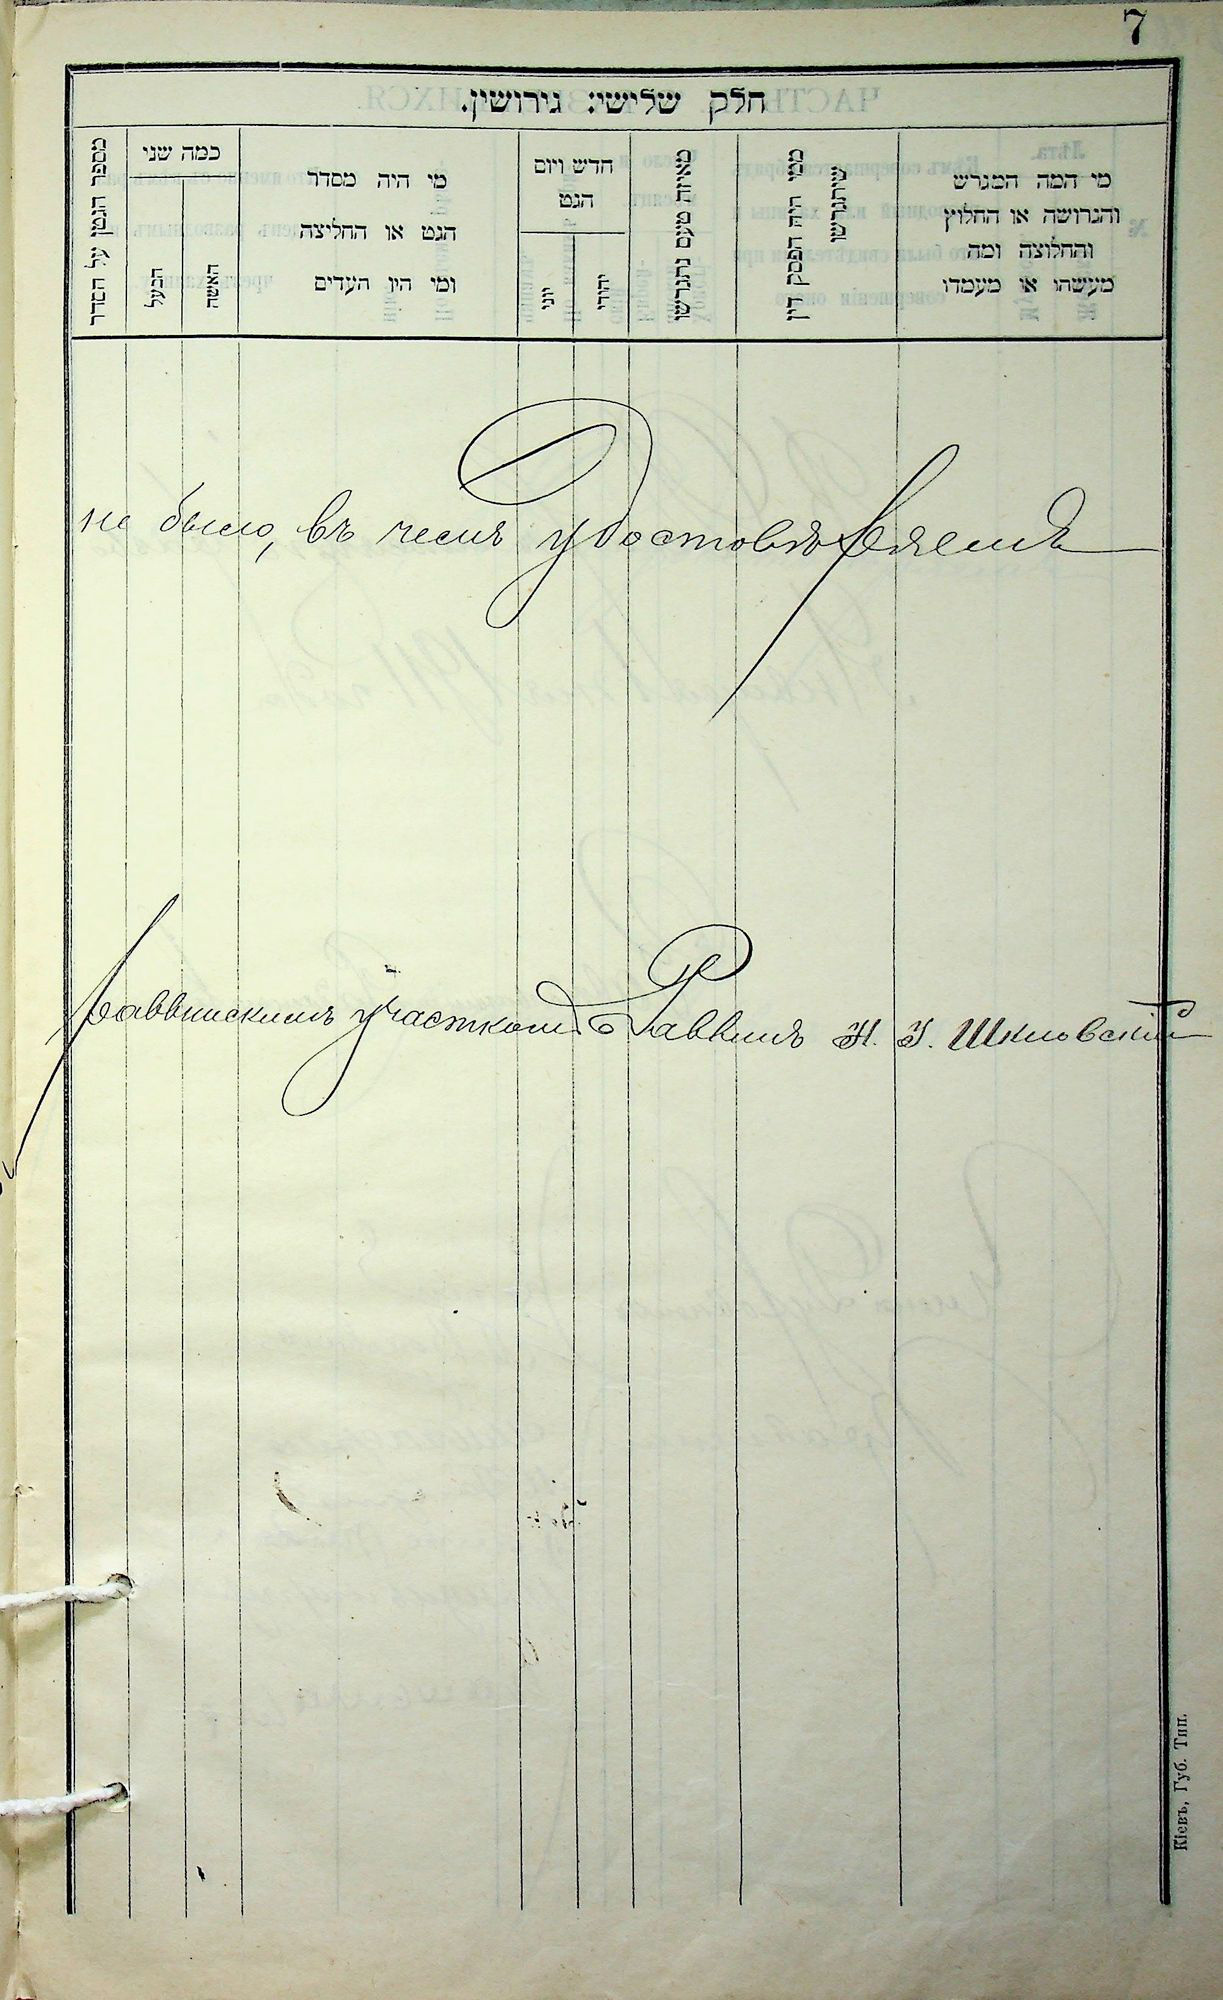 7
חלק שלישי: גירושין.
מספר הגטן על הסדר
כמה שני
הבעל
האשה
מי היה מסדר
הגט או החליצה
ומי היו העדים
חדש ויום
הגט
יוני
יהודי
מאיזה טעם נתגרשו
ממי היה הפסק דין
שיתגרשו
מי המה המגרש
והגרושה או החלוץ
והחלוצה ומה
מעשהו או מעמדו
не было, въ чемъ удостовѣряемъ
раввинскимъ участкомъ Раввинъ Н. I. Шкловскій
Кіевъ, Губ. Тип.